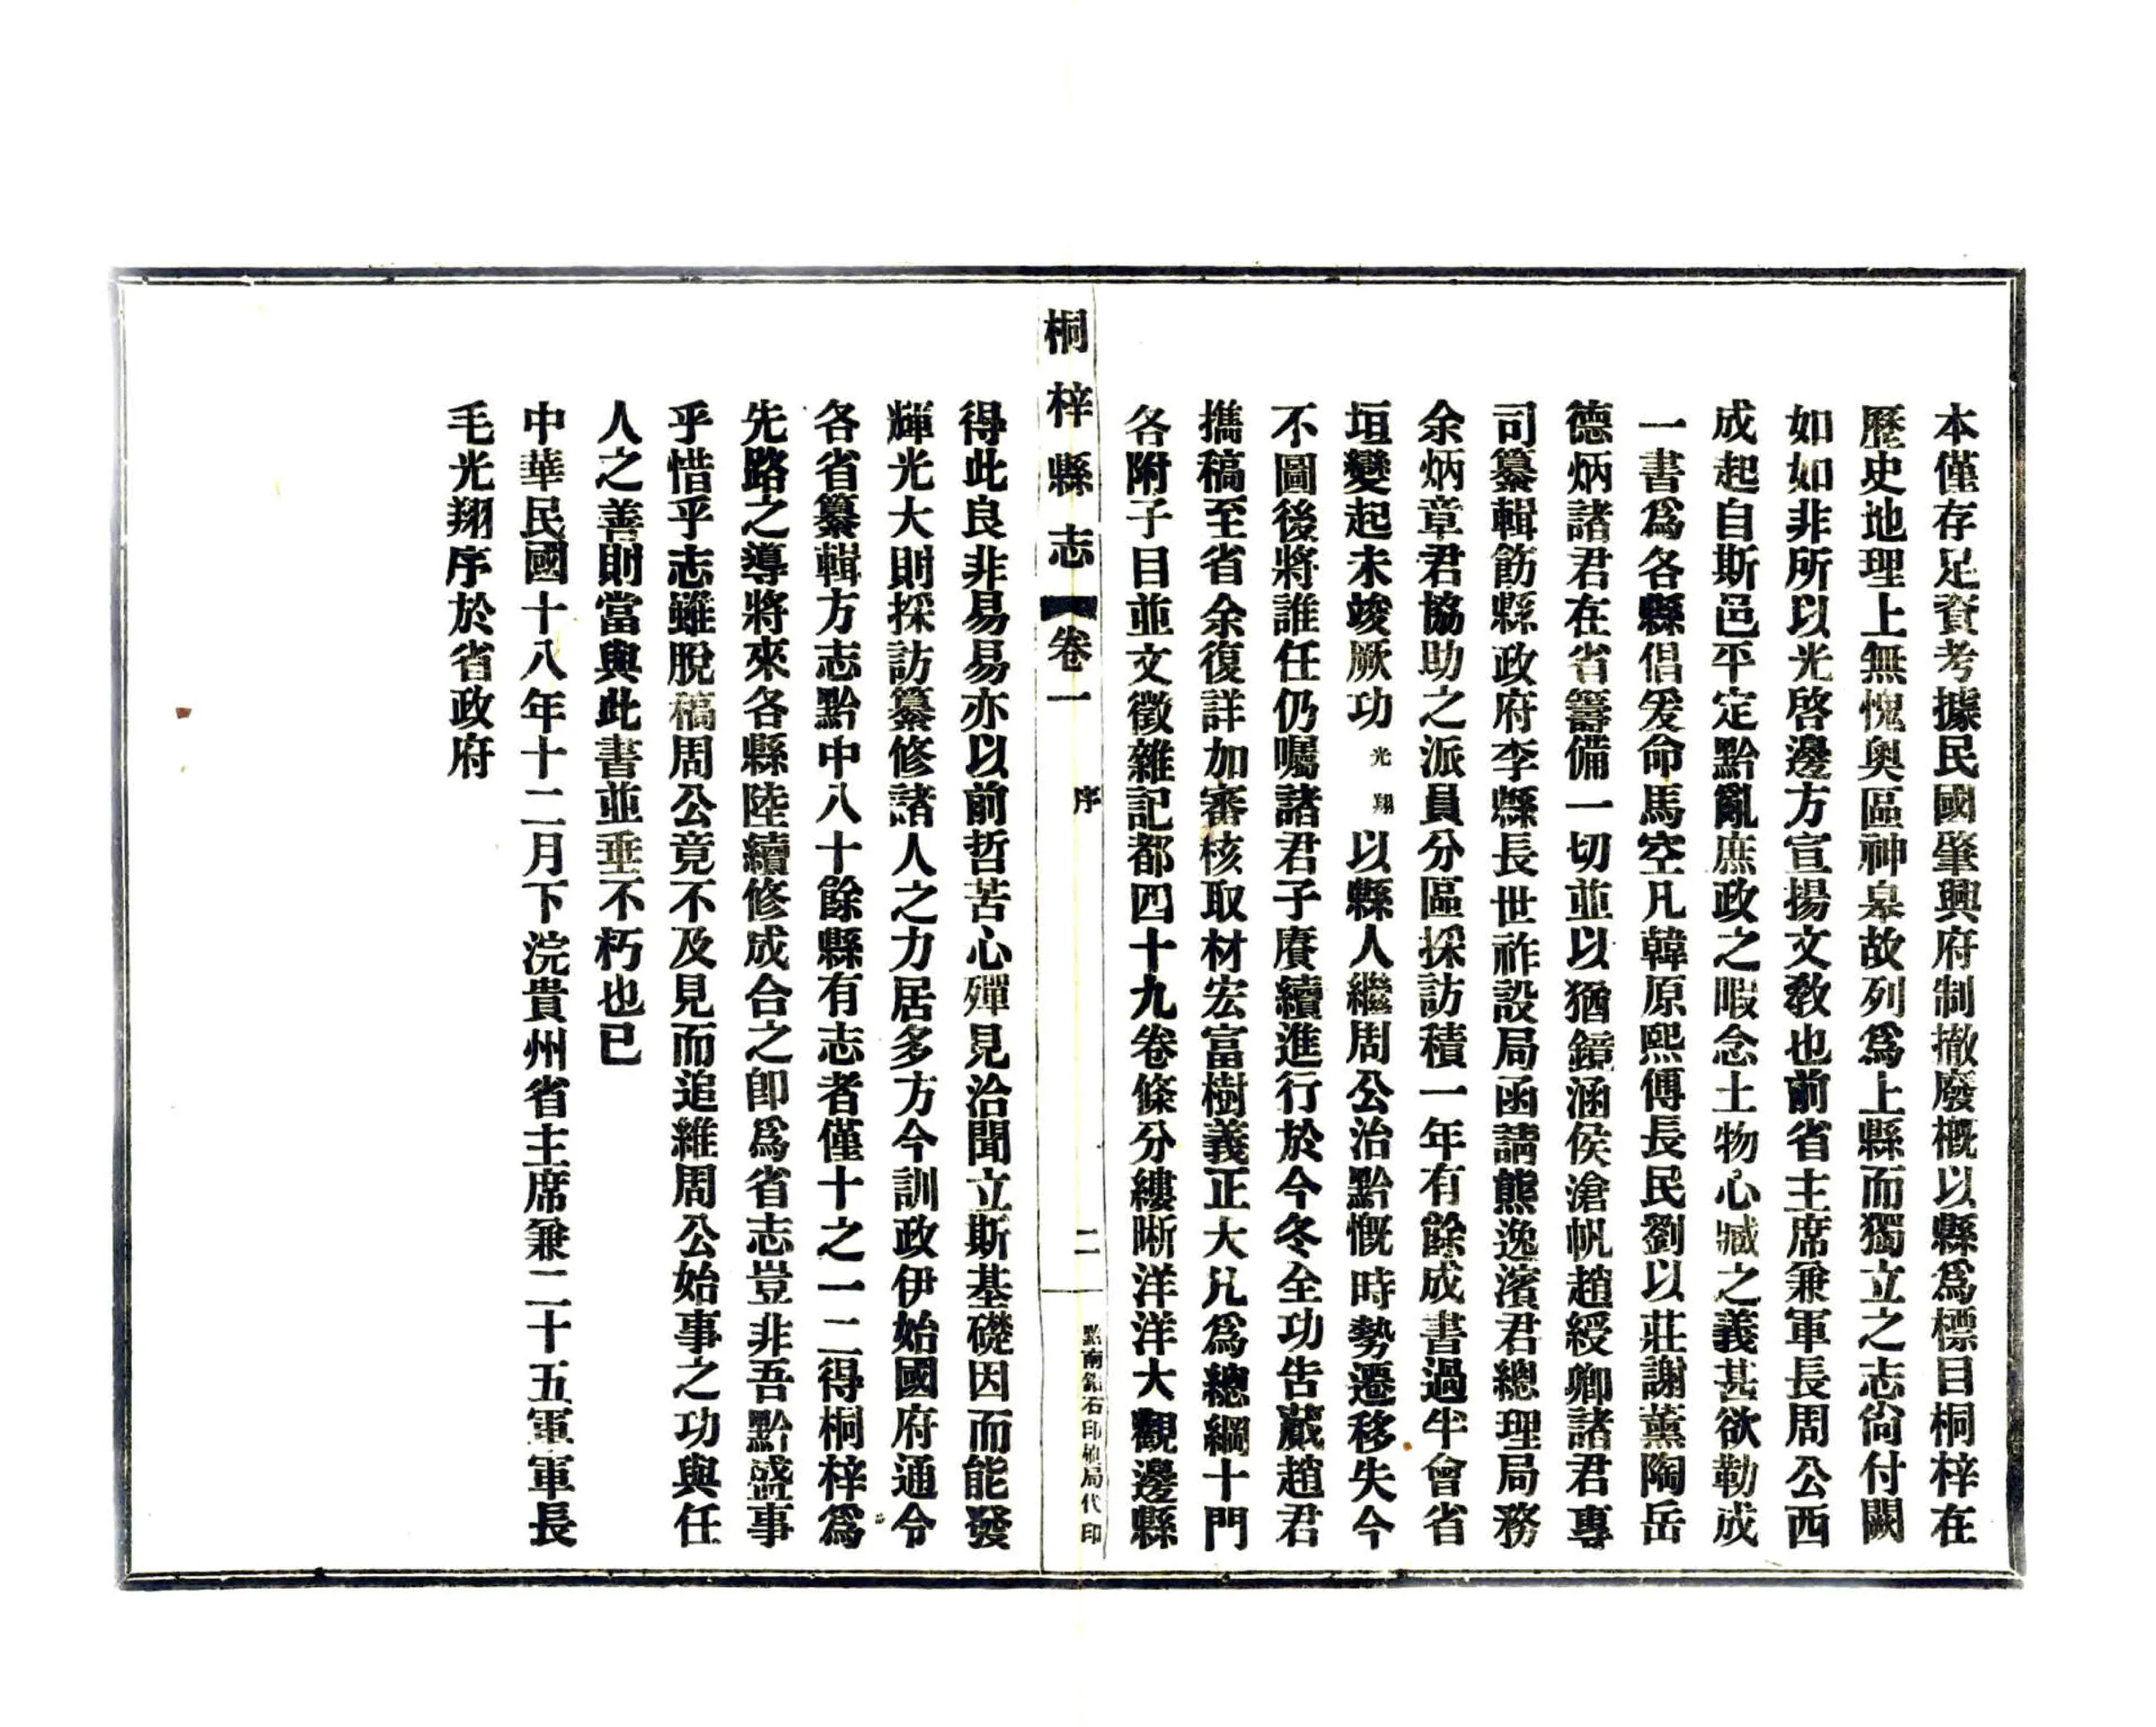 本僅存足資考據民國肇興府制撤廢概以縣爲標目桐梓在
歷史地理上無愧奧區神皋故列爲上縣而獨立之志尙付闕
如如非所以光啓邊方宣揚文敎也前省主席兼軍長周公西
成起自斯邑平定黔亂庶政之暇念土物心臧之義甚欲勒成
一書爲各縣倡爰命馬空凡韓原熙傅長民劉以莊謝薰陶岳
德炳諸君在省籌備一切並以猶鏡涵侯滄帆趙綬卿諸君專
司纂輯飭縣政府李縣長世祚設局函請熊逸濱君總理局務
余炳章君協助之派員分區採訪積一年有餘成書過半會省
垣變起未竣厥功光翔以縣人繼周公治黔慨時勢遷移失今
不圖後將誰任仍囑諸君子賡續進行於今冬全功告蕆趙君
攜稿至省余復詳加審核取材宏富樹義正大凡爲總綱十門
各附子目並文徵雜記都四十九卷條分縷晰洋洋大觀邊縣
桐梓縣志 卷一 序 二 黔南鉛石印刷局代印
得此良非易易亦以前哲苦心殫見洽聞立斯基礎因而能發
輝光大則採訪纂修諸人之力居多方今訓政伊始國府通令
各省纂輯方志黔中八十餘縣有志者僅十之一二得桐梓爲
先路之導將來各縣陸續修成合之卽爲省志豈非吾黔盛事
乎惜乎志雖脫稿周公竟不及見而追維周公始事之功與任
人之善則當與此書並垂不朽也已
中華民國十八年十二月下浣貴州省主席兼二十五軍軍長
毛光翔序於省政府